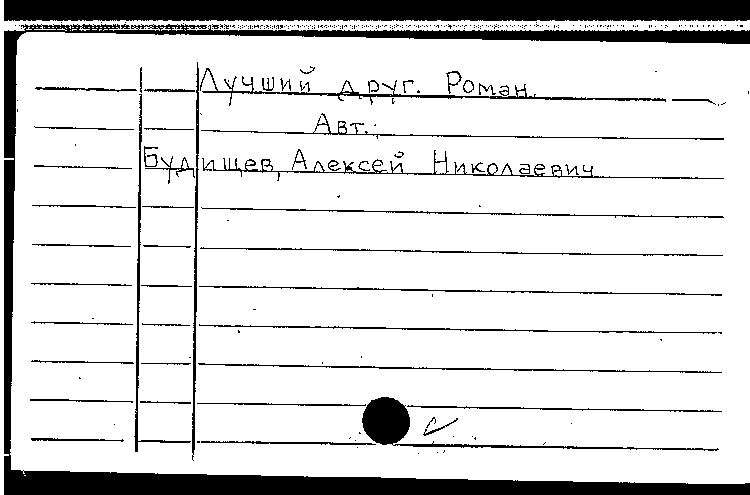 Лучший друг. Роман.
Авт.:
Будищев, Алексей Николаевич